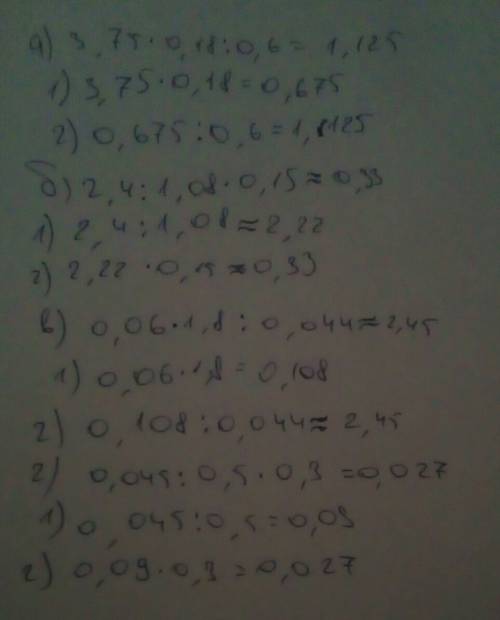 а) 3,75·0,18:0,6= 1,125
1) 3,75·0,18=0,675
2) 0,675:0,6=1,125
б) 2,4:1,08·0,15≈0,33
1) 2,4:1,08≈2,22
2) 2,22·0,15≈0,33
в) 0,06·1,8:0,044≈2,45
1) 0,06·1,8=0,108
2) 0,108:0,044≈2,45
г) 0,045:0,5·0,3=0,027
1) 0,045:0,5=0,09
2) 0,09·0,3=0,027